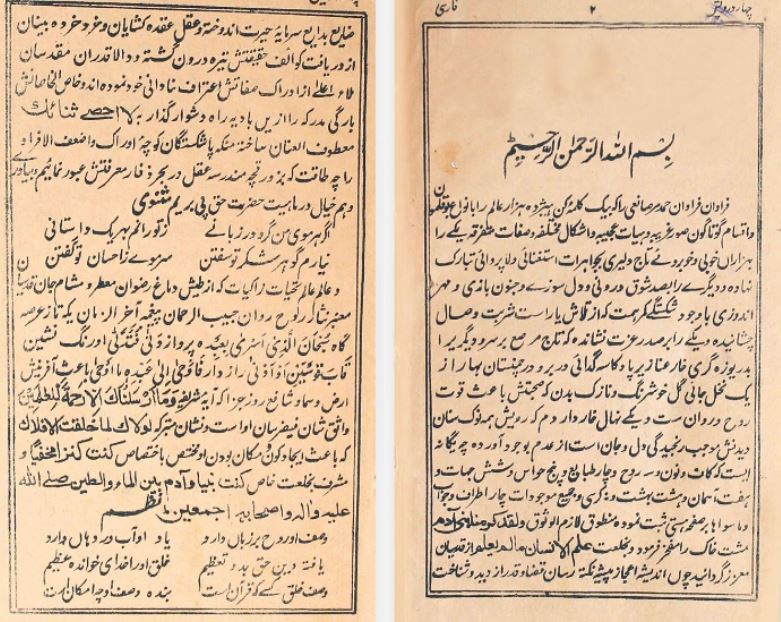 چهار درویش ۲ فارسی
بسم الله الرحمن الرحیم
فراوان فراوان حمد مر صانعی را که بیک کلمهٔ کن هیژده هزار عالم را بالوان بوقلمون
و اقسام گوناگون صور غریبه و هیات عجیبه و اشکال مختلفه و صفات متفرقه یکے را
هزاران خوبی و خوبروئے تاج دلبری بجواهرات استغنائی و لاپروائی تبارک
نهاده و دیگرے را بصد شوق درونی و دل سوزے و جنون بازی و مهر
اندوزی باوجود شکستگے کمر همت که از تلاش یار است شربت وصال
چشانیده و یکے را بر صدر عزت نشانده که تاج مرصع بر سر و دیگریرا
بدریوزه گری خار عنا زیر پا و کاسه گدائی در بر و در چمنستان بهار از
یک نخل جائی گل خوشرنگ و نازک بدن که صحبتش باعث قوت
روح و روان ست و یکے نهال خار دار دم که رویش همه نوک سنان
دیدنش موجب رنجیدگی دل و جان است از عدم بوجود آورده
ایست که کاف و نون و سه روح و چار طبایع و پنج حواس و شش جهات و
هفت آسمان و هشت بهشت و نه کرسی و جمیع موجودات چار اطراف و جوانب
و ماسواها بر صفحه هستی ثبت نموده منطوق لازم الوثوق ولقد کرمنا بنی آدم
مشت خاک را مفخر فرمود و بخلعت علم الانسان مالم یعلم از قدسیان
معزز گردانید چوں اندیشه اعجاز پیشه نکته رسان قضا و قدر از دید و شناخت
ضایع بدایع سرمایهٔ حیرت اندوخته و عقل عقده کشایان و خرد خرده بینان
از دریافت کوائف حقیقتش تیره درون گشته و والاقدران مقدسان
ملاء اعلے از ادراک صفاتش اعتراف نادانی خود نموده اند و خاص الخاصانش
بارگی مدرکه را ازیں بادیه راه دشوار گذار به لا احصے ثنائک
معطوف العنان ساخته منکه پاشکستگان کوچهٔ ادراک و اضعف الافراد
را چه طاقت که بزورقچه مندرسه عقل در بحر ذخار معرفتش عبور نمائیم و بیاوری
وهم خیال در ماهیت حضرت حق پی بریم مثنوی
اگر هر موی من گردد زبانے از تو رانم بهر یک داستانی
نیارم گوهر شکر تو سفتن سر موے ز احسان تو گفتن
و عالم عالم تحیات زاکیات که از طیش دماغ رضوان معطر و مشام جان قدسیان
معنبر نثار روح روان حبیب الرحمان پیغمبر آخر الزمان یکه تاز عرصه
گاه سبحان الذی اسری بعبده پرواز دنی فتدلی اورنگ نشین
قاب قوسین او ادنی راز دار فاوحی الی عبده ما اوحی باعث آفرینش
ارض و سما و شافع روز جزا که آیه شریفه وما ارسلناک الا رحمة للعالمین
واثق شان فیض رسان اوست و نشان متبرکه لولاک لما خلقت الافلاک
که باعث ایجاد کون و مکان بودن او مختص باختصاص کنت کنزا مخفیا و
مشرف بخلعت خاص کنت نبیا و آدم بین الماء والطین صلے الله
علیه واله واصحابه اجمعین نظم
وصف او روح بر زبان دارد یاد او آب در دهان دارد
یافته دین حق بدو تعظیم خلق او را خدای خوانده عظیم
وصف خلق کسے که قرآن است بنده و صف او چه امکان است